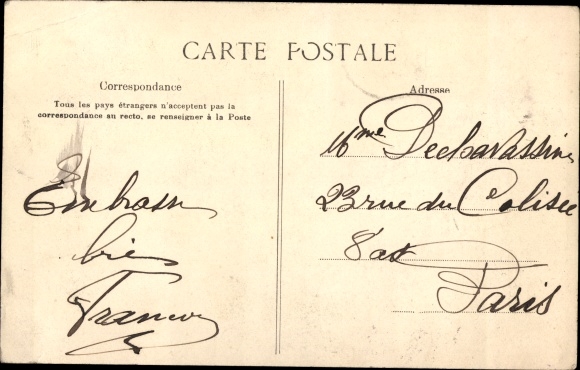 CARTE POSTALE
Correspondance
Tous les pays étrangers n'acceptent pas la
correspondance au recto, se renseigner à la Poste
Embrasse
bien
Adresse
Mme Dechavassine
23 rue du Colisée
8 at
Paris